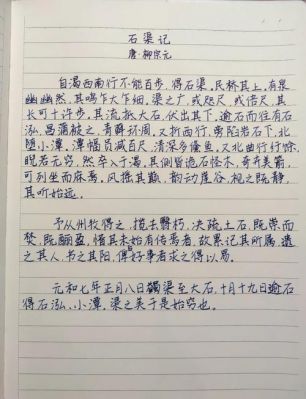 石渠记
唐·柳宗元
自渴西南行不能百步,得石渠,民桥其上,有泉
幽幽然,其鸣乍大乍细,渠之广或咫尺,或倍尺,其
长可十许步,其流抵大石,伏出其下,逾石而往有石
泓,昌蒲被之,青藓环周,又折西行,旁陷岩石下,北
堕小潭,潭幅员减百尺,清深多鯈鱼,又北曲行纡馀,
睨若无穷,然卒入于渴,其侧皆诡石怪木,奇卉美箭,
可列坐而庥焉,风摇其巅,韵动崖谷,视之既静,
其听始远。
予从州牧得之,揽去翳朽,决疏土石,既崇而
焚,既酾盈,惜其未始有传焉者,故累记其所属,遗
之其人,书之其阳,俾好事者求之得以易。
元和七年正月八日蠲渠至大石,十月十九日逾石
得石泓、小潭,渠之美于是始穷也。